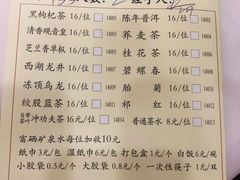 黑枸杞茶 16/位 14001 陈年普洱 16/位 14002
清香观音皇 16/位 14003 荞麦茶 16/位
芝兰香单枞 16/位 桂花茶 16/位
西湖龙井 16/位 碧螺春 16/位
冻顶乌龙 16/位 胎菊 16/位
绞股蓝茶 16/位 祁红 16/位
冲功夫茶 16/位 普通茶水 8/位
富硒矿泉水每位加收10元
纸巾3元/包 湿纸巾6元/包 打包盒1元/个 白饭6元/碗
小胶袋0.5元/个 大胶袋0.8元/个 一次性筷子1元/双